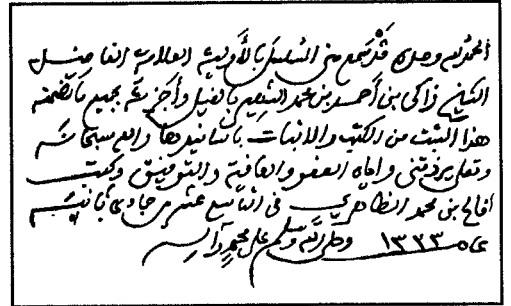 الحمد لله وحده قد سمع مني المسلسل بالأولية العلامة الفاضل
الشيخ زاكي بن أحمد بن محمد بالفيل وأجزته بجميع ما تضمنه
هذا الثبت من الكتب والاثبات بأسانيدها والله سبحانه
وتعالى يرزقني واياه العفو والعافية والتوفيق وكتب
أفالح بن محمد الظاهري في التاسع عشر من جمادى ثانية
عام ١٣٢٣ وصلى الله وسلم على محمد وآله